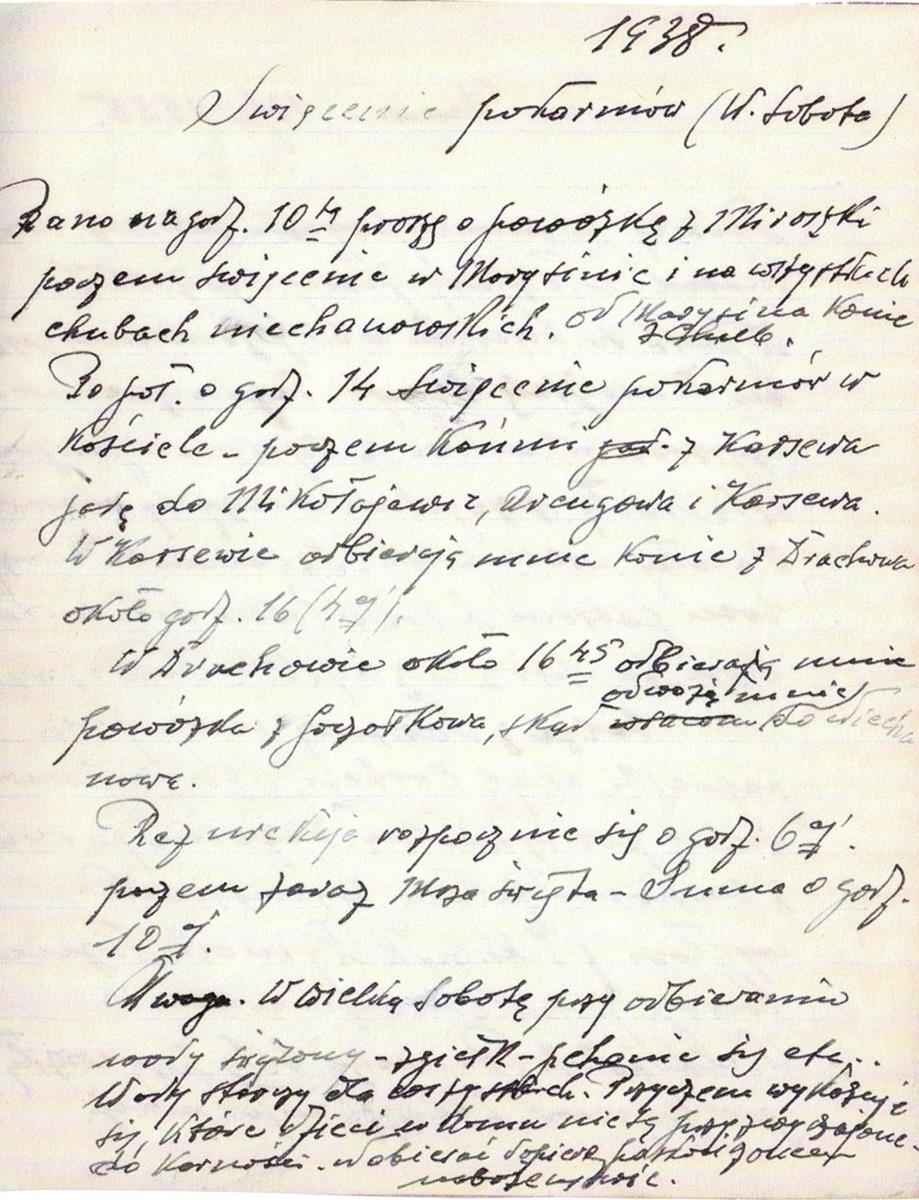 1938.
Święcenie pokarmów (W. Sobota)
Rano na godz. 10 tą proszę o powózkę z Miroszki
poczem święcenie w Marysinie i na wszystkich
chubach niechanowskich. od Marysina Konie
z Chulb.
Po poł. o godz. 14 święcenie pokarmów w
Kościele – poczem Końmi z Karsewa
jadę do Mikołajewic, Arcugowa i Karsewa.
W Karsewie odbierają mnie Konie z Drachowa
około godz. 16 (4 ej).
W Drachowie około 16 45 odbierają mnie
odwożą mnie
powózka z Goczałkowa, skąd wracam do Niecha
nowa.
Rezurekcja rozpocznie się o godz. 6 ej.
poczem zaraz Msza święta – Suma o godz.
10 ej.
Uwaga. W Wielką Sobotę przy odbieraniu
wody święconej – zgiełk – pchanie się etc..
Wody starczy dla wszystkich. Przyczem wykazuje
się, które dzieci w domu nie są przyzwyczajone
do Karności. Wobierać dopiero po skończonem
nabożeństwie.